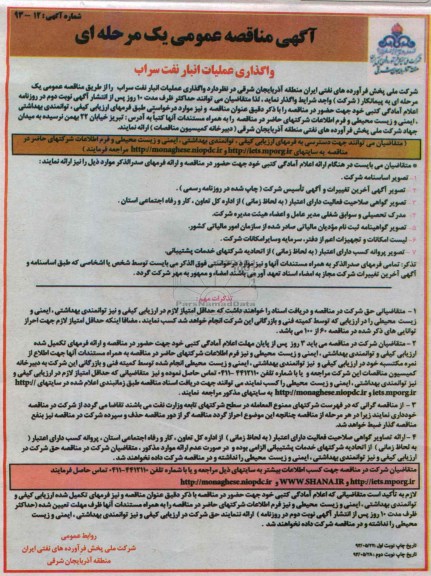 شماره آگهی: ۱۲ - ۹۳
آگهی مناقصه عمومی یک مرحله ای
واگذاری عملیات انبار نفت سراب
شرکت ملی پخش فرآورده های نفتی ایران منطقه آذربایجان شرقی در نظردارد واگذاری عملیات انبار نفت سراب را از طریق مناقصه عمومی یک
مرحله ای به پیمانکار ( شرکت ) واجد شرایط واگذار نماید ، لذا متقاضیان می توانند حداکثر ظرف مدت ۱۰ روز پس از انتشار آگهی نوبت دوم در روزنامه
اعلام آمادگی کتبی خود جهت حضور در مناقصه را با ذکر دقیق عنوان مناقصه و نیز موارد درخواستی طبق فرمهای ارزیابی کیفی ، توانمندی بهداشتی
، ایمنی و زیست محیطی و فرم اطلاعات شرکتهای حاضر در مناقصه را به همراه مستندات آنها کتبا به آدرس : تبریز خیابان ۲۲ بهمن نرسیده به میدان
جهاد شرکت ملی پخش فرآورده های نفتی منطقه آذربایجان شرقی ( دبیرخانه کمیسیون مناقصات ) ارائه نمایند.
( متقاضیان می توانند جهت دسترسی به فرمهای ارزیابی کیفی ، توانمندی بهداشتی ، ایمنی و زیست محیطی و فرم اطلاعات شرکتهای حاضر در
مناقصه به سایتهای http://iets.mporg.ir و http://monaghese.niopdc.ir مراجعه فرمایند.)
* متقاضیان می بایست در هنگام ارائه اعلام آمادگی کتبی خود جهت حضور در مناقصه و ارائه فرمهای صدرالذکر موارد ذیل را نیز ارائه نمایند :
۱. تصویر اساسنامه شرکت .
۲. تصویر آگهی آخرین تغییرات و آگهی تأسیس شرکت ( چاپ شده در روزنامه رسمی ) .
۳. تصویر گواهی صلاحیت فعالیت دارای اعتبار ( به لحاظ زمانی ) از اداره کل تعاون ، کار و رفاه اجتماعی استان .
۴. مدرک تحصیلی و سوابق شغلی مدیر عامل و اعضاء هیئت مدیره شرکت.
۵. تصویر گواهینامه ثبت نام مؤدیان مالیاتی صادر شده از سازمان امور مالیاتی کشور.
۶. لیست امکانات و تجهیزات اعم از دفتر، سرمایه وسایر امکانات شرکت .
۷. تصویر پروانه کسب دارای اعتبار ( به لحاظ زمانی ) از اتحادیه شرکتهای خدمات پشتیبانی.
تذکر: تمامی فرمهای صدرالذکر به همراه مستندات آنها و نیز موارد درخواستی فوق الذکر می بایست توسط شخص یا اشخاصی که طبق اساسنامه و
آگهی آخرین تغییرات شرکت مجاز به امضاء اسناد تعهد آور می باشند امضاء و ممهور به مهر شرکت گردد .
تذکرات مهم:
۱ - متقاضیانی حق شرکت در مناقصه و دریافت اسناد را خواهند داشت که حداقل امتیاز لازم در ارزیابی کیفی و نیز توانمندی بهداشتی، ایمنی و
زیست محیطی را در ارزیابی که توسط کمیته فنی و بازرگانی این شرکت انجام خواهد شد کسب نمایند . مضافا اینکه حداقل امتیاز لازم جهت احراز
توانایی های ذکر شده در مناقصه ۶۰ از ۱۰۰ می باشد .
۲ - متقاضیان شرکت در مناقصه می باید ۳ روز پس از پایان مهلت اعلام آمادگی کتبی خود جهت حضور در مناقصه و ارائه فرمهای تکمیل شده
ارزیابی کیفی و توانمندی بهداشتی ، ایمنی و زیست محیطی و نیز فرم اطلاعات شرکتهای حاضر در مناقصه به همراه مستندات آنها جهت اطلاع از
نمره مکتسبه خود در ارزیابی کیفی و نیز توانمندی بهداشتی ، ایمنی و زیست محیطی انجام شده توسط کمیته فنی و بازرگانی این شرکت به دبیرخانه
کمیسیون مناقصات این شرکت مراجعه و یا با شماره تلفن ۴۴۱۲۱۱۰-۰۴۱۱ تماس حاصل نموده و نیز متقاضیانی که حداقل امتیاز لازم در ارزیابی کیفی و
نیز توانمندی بهداشتی ، ایمنی و زیست محیطی را کسب نمایند می توانند جهت دریافت اسناد مناقصه طبق زمانبندی اعلام شده در سایتهای http://
iets.mporg.ir و http://monaghese.niopdc.ir به سایتهای مذکور مراجعه نمایند .
۳ - از مناقصه گرانی که در فهرست شرکتهای ممنوع المعامله در سطح شرکتهای تابعه وزارت نفت می باشند تقاضا می گردد از شرکت در مناقصه
خودداری نمایند زیرا در هر مرحله از مناقصه چنانچه این موضوع احراز گردد مناقصه گر از دور مناقصه حذف و سپرده شرکت در مناقصه نیز بنفع
مناقصه گذار ضبط خواهد شد.
۴ - ارائه تصویر گواهی صلاحیت فعالیت دارای اعتبار ( به لحاظ زمانی ) از اداره کل تعاون ، کار و رفاه اجتماعی استان ، پروانه کسب دارای اعتبار (
به لحاظ زمانی ) از اتحادیه شرکتهای خدمات پشتیبانی الزامی بوده و در صورت عدم ارائه موارد مذکور ، متقاضیان شرکت در مناقصه حق شرکت در
ارزیابی کیفی و نیز توانمندی بهداشتی ، ایمنی و زیست محیطی را نداشته و در مناقصه شرکت داده نخواهند شد .
متقاضیان شرکت در مناقصه جهت کسب اطلاعات بیشتر به سایتهای ذیل مراجعه و یا با شماره تلفن ۴۴۱۲۱۱۰-۰۴۱۱ تماس حاصل فرمایند
http://iets.mporg.ir و WWW.SHANA.IR و http://monaghese.niopdc.ir
لازم به تأکید است متقاضیانی که اعلام آمادگی کتبی خود جهت حضور در مناقصه با ذکر دقیق عنوان مناقصه و نیز فرمهای تکمیل شده ارزیابی کیفی و
توانمندی بهداشتی ، ایمنی و زیست محیطی و نیز فرم اطلاعات شرکتهای حاضر در مناقصه را به همراه مستندات آنها ظرف مهلت تعیین شده (حداکثر
ظرف مدت ۱۰ روز پس از انتشار آگهی نوبت دوم در روزنامه ) ارائه ننمایند حق شرکت در ارزیابی کیفی و نیز توانمندی بهداشتی ، ایمنی و زیست
محیطی را نداشته و در مناقصه شرکت داده نخواهند شد .
روابط عمومی
شرکت ملی پخش فرآورده های نفتی ایران
منطقه آذربایجان شرقی